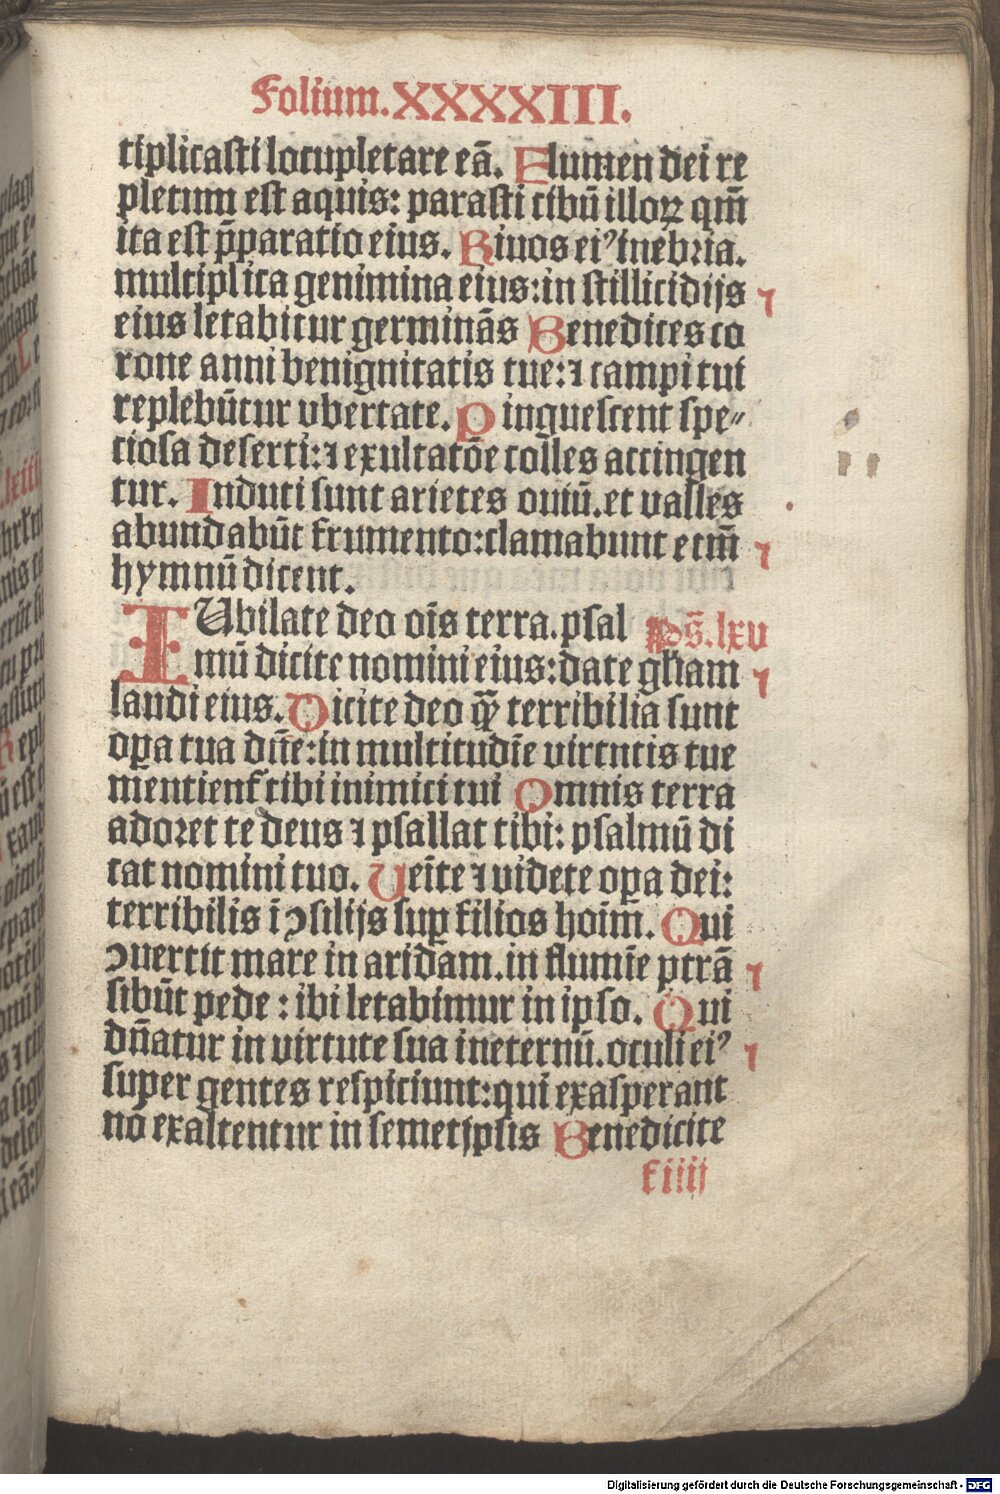 Folium. XXXXIII.
tiplicasti locupletare eã. Flumen dei re
pletum est aquis: parasti cibũ illoꝝ qm̃
ita est p̃paratio eius. Riuos eiꝰ inebria.
multiplica genimina eius: in stillicidijs
eius letabitur germinãs Benedices co
rone anni benignitatis tue: ⁊ campi tui
replebũtur vbertate. Pinguescent spe⸗
ciosa deserti: ⁊ exultatõe colles accingen
tur. Induti sunt arietes ouiũ. et valles
abundabũt frumento: clamabunt etm̃
hymnũ dicent.
IUbilate deo oĩs terra. psal Ps̃. lxv
mũ dicite nomini eius: date gl̃iam
laudi eius. Dicite deo q̃ȝ terribilia sunt
oꝑa tua dñe: in multitudĩe virtutis tue
mentienť tibi inimici tui Omnis terra
adoret te deus ⁊ psallat tibi: psalmũ di
cat nomini tuo. Ueĩte ⁊ videte oꝑa dei:
terribilis ĩ ꝯsilijs suꝑ filios hoĩm. Qui
ꝯuertit mare in aridam. in flumĩe ꝑtrã
sibũt pede: ibi letabimur in ipso. Qui
dñatur in virtute sua ineternũ. oculi eiꝰ
super gentes respiciunt: qui exasperant
nõ exaltentur in semetipsis Benedicite
f iiij
Digitalisierung gefördert durch die Deutsche Forschungsgemeinschaft - DFG